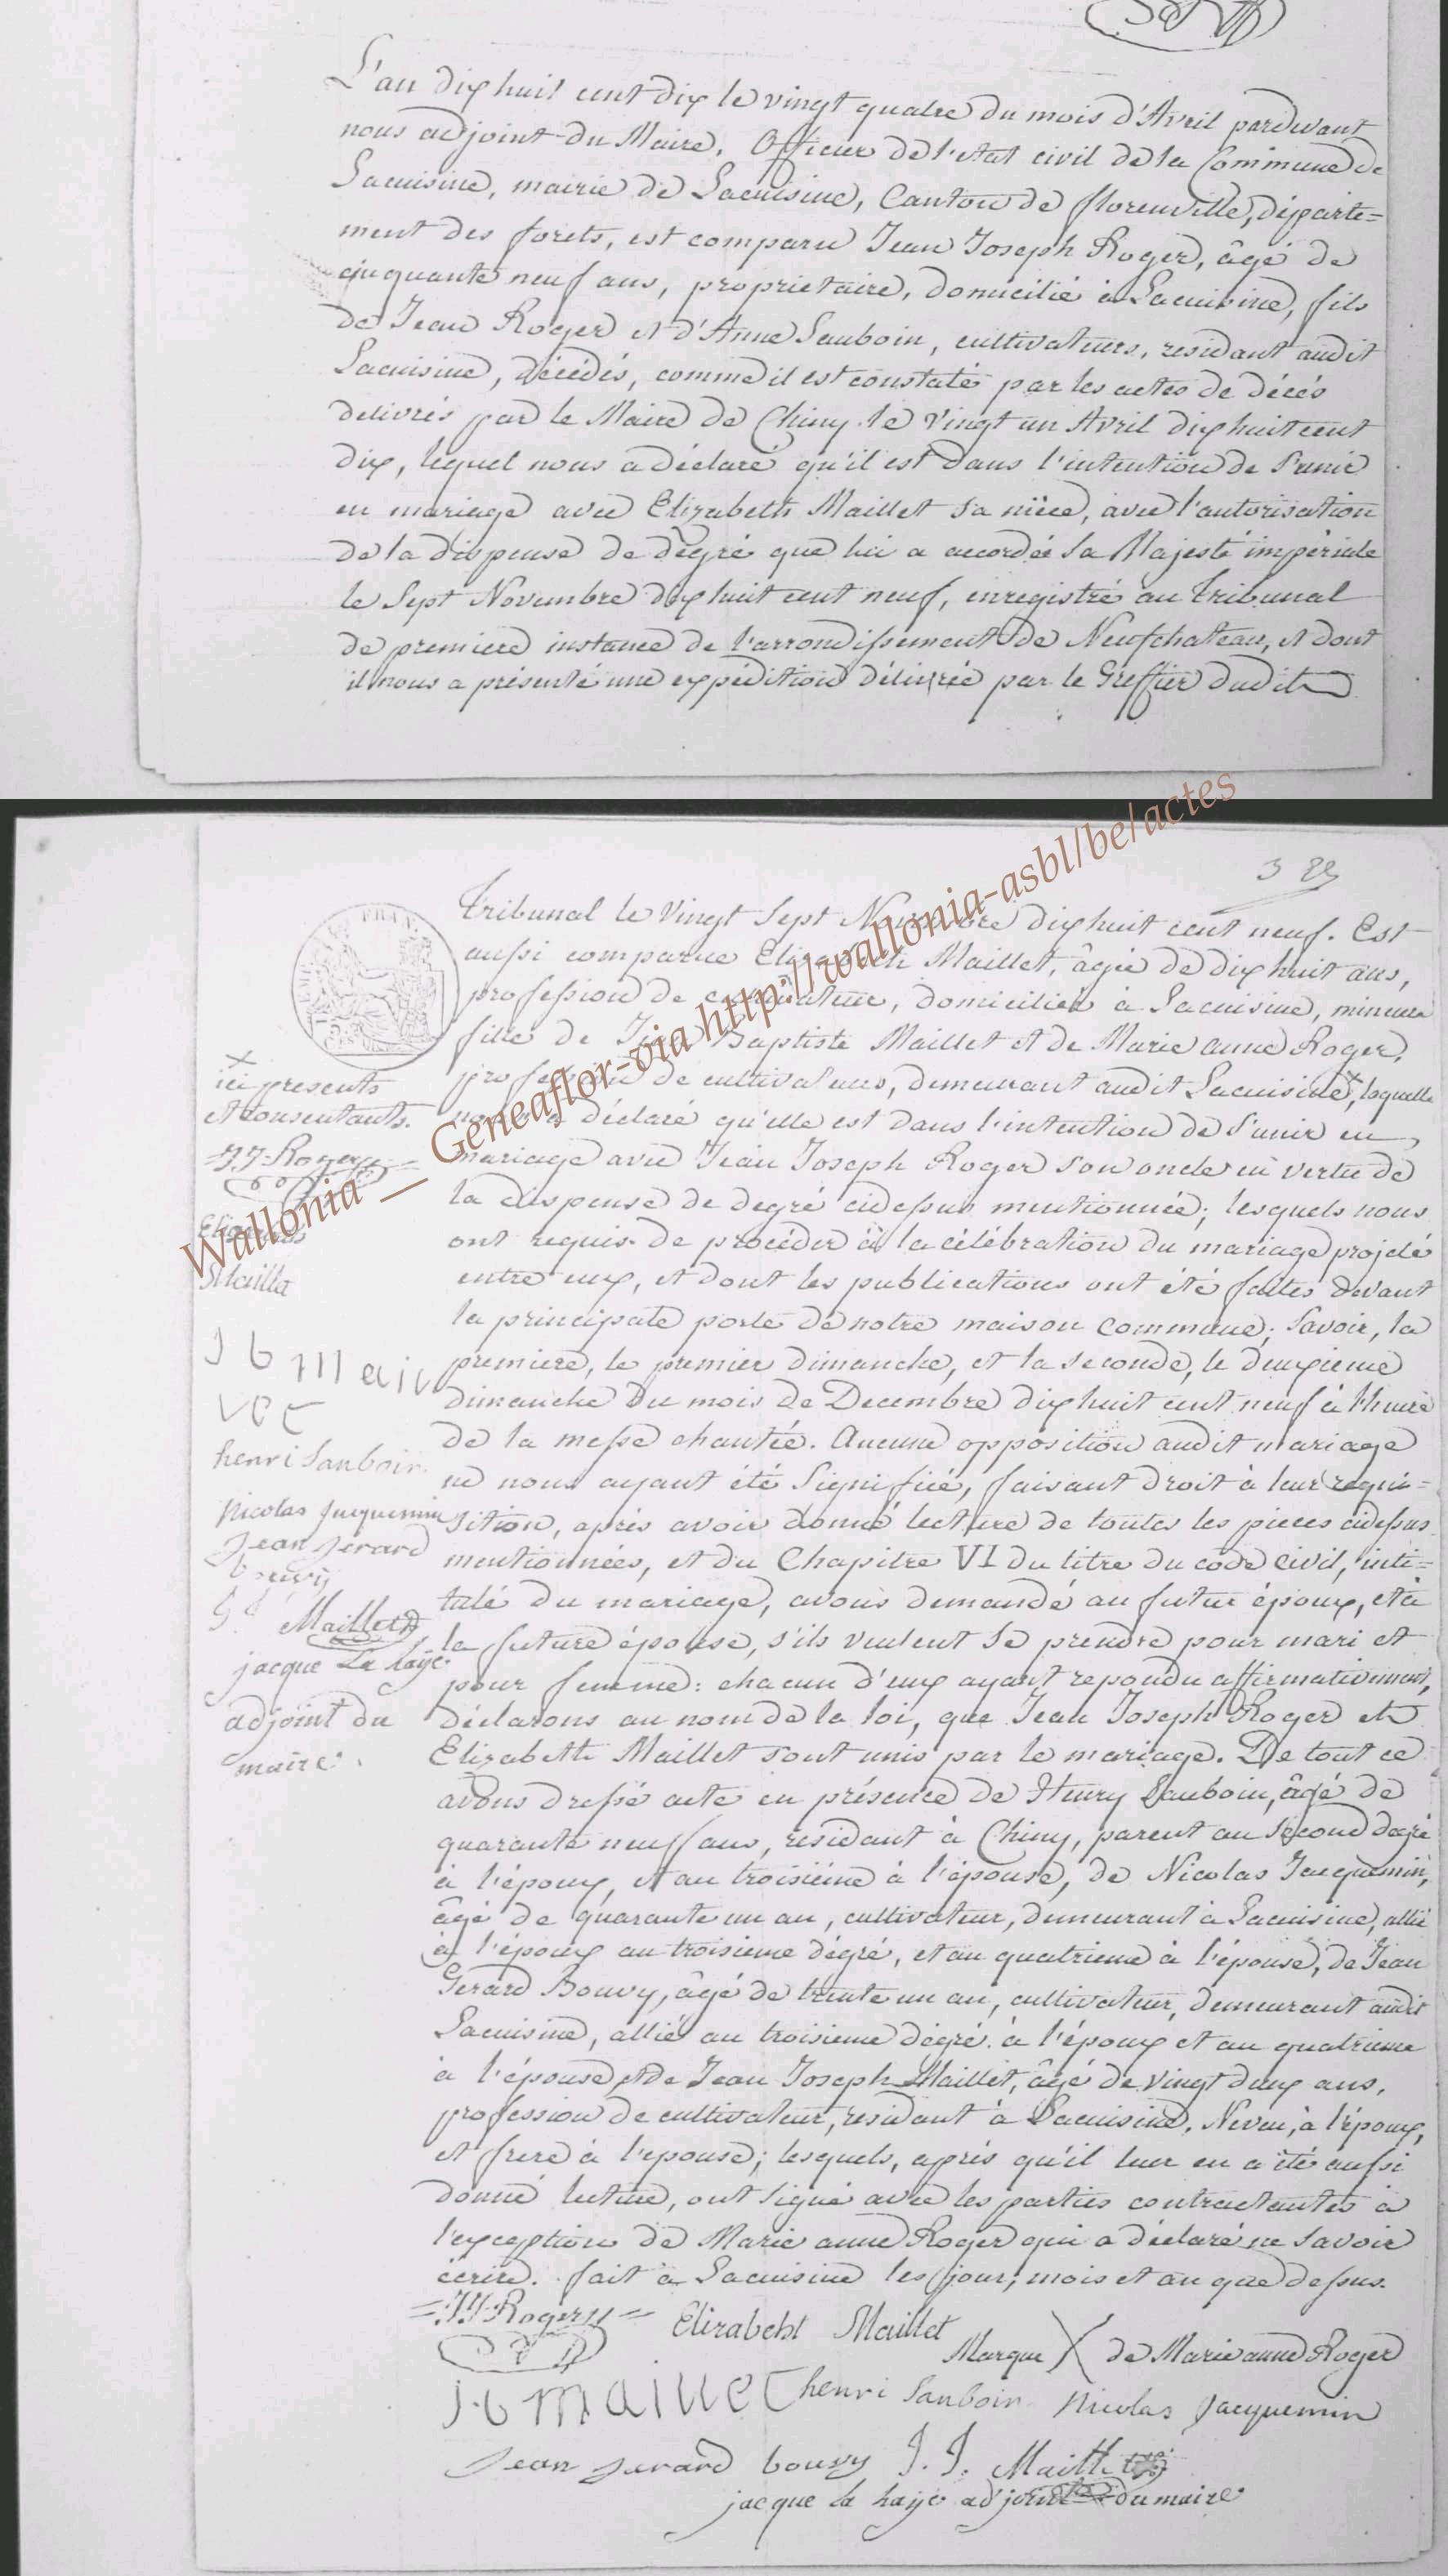 L'an dix huit cent dix le vingt quatre du mois d'Avril pardevant
nous adjoint du Maire, Officier de l'etat civil de la Commune de
Lacuisine, mairie de Lacuisine, Canton de florenville, départe=
ment des forets, est comparu Jean Joseph Roger, âgé de
cinquante neuf ans, proprietaire, domicilié à Lacuisine, fils
de Jean Roger et d'Anne Sauboin, cultivateurs, residant audit
Lacuisine, décédés, comme il est constaté par les actes de décés
delivrés par le Maire de Chiny le vingt un Avril dix huit cent
dix, lequel nous a déclaré qu'il est dans l'intention de s'unir
en mariage avec Elizabeth Maillet sa nièce, avec l'autorisation
de la dispense de dégré que lui a accordée Sa Majesté impériale
le Sept Novembre dix huit cent neuf, enregistré au Tribunal
de premiere instance de l'arrondissement de Neufchateau, et dont
il nous a présenté une expédition délivrée par le Greffier dudit
3 22
Tribunal le Vingt Sept Novembre dix huit cent neuf. Est
aussi comparue Elizabeth Maillet, âgée de dix huit ans,
profession de cultivateur, domiciliée à Lacuisine, mineure
fille de Jean Baptiste Maillet et de Marie anne Roger,
profession de cultivateurs, demeurant audit Lacuisine, laquelle
nous a déclaré qu'elle est dans l'intention de s'unir en
mariage avec Jean Joseph Roger son oncle en vertu de
la dispense de degré cidessus mentionnée; lesquels nous
ont requis de procéder à la célébration du mariage projeté
entre eux, et dont les publications ont été faites devant
la principale porte de notre maison commune; Savoir, la
premiere, le premier dimanche, et la seconde, le deuxieme
dimanche du mois de Decembre dix huit cent neuf à l'heure
de la messe chantée. Aucune opposition audit mariage
ne nous ayant été signifiée, faisant droit à leur requi=
sition, après avoir donné lecture de toutes les pieces cidessus
mentionnées, et du Chapitre VI du titre du code Civil, inti=
tulé du mariage, avons demandé au futur époux, et à
la future épouse, s'ils veulent se prendre pour mari et
pour femme: chacun d'eux ayant repondu affirmativement,
déclarons au nom de la loi, que Jean Joseph Roger et
Elizabeth Maillet sont unis par le mariage. De tout ce
avons dressé acte en présence de Henry Sauboin, âgé de
quarante neuf ans, résidant à Chiny, parent au second dégré
à l'époux, et au troisiéme à l'épouse, de Nicolas Jacquemin,
âgé de quarante un an, cultivateur, demeurant à Lacuisine, allié
à l'époux au troisieme dégré, et au quatrieme à l'épouse, de Jean
Gerard Bouvy, âgé de trente un an, cultivateur, demeurant audit
Lacuisine, allié au troisieme dégré à l'époux et au quatrieme
à l'épouse, et de Jean Joseph Maillet, âgé de vingt deux ans,
profession de cultivateur, residant à Lacuisine, Neveu, à l'époux,
et frere à l'epouse; lesquels, après qu'il leur en a été aussi
donné lecture, ont signé avec les parties contractantes à
l'exception de Marie anne Roger qui a déclaré ne savoir
écrire. fait à Lacuisine les jour, mois et an que dessus.
=JJ Roger= Elizabeht Maillet
Marque X de Marie anne Roger
Jb maillet henri Sauboin Nicolas Jacquemin
Jean Jerard bouvy J. J. Maillet
jacque la haije adjoint du maire
x
ici presents
et consentants.
=JJ Roger=
Maillet
Jb mail
let
henri Sauboin
Nicolas Jacquemin
Jean Jerard
bouvy
Maillet
jacque la haije
adjoint du
maire
Wallonia __ Geneaflor-via http://wallonia-asbl/be/actes